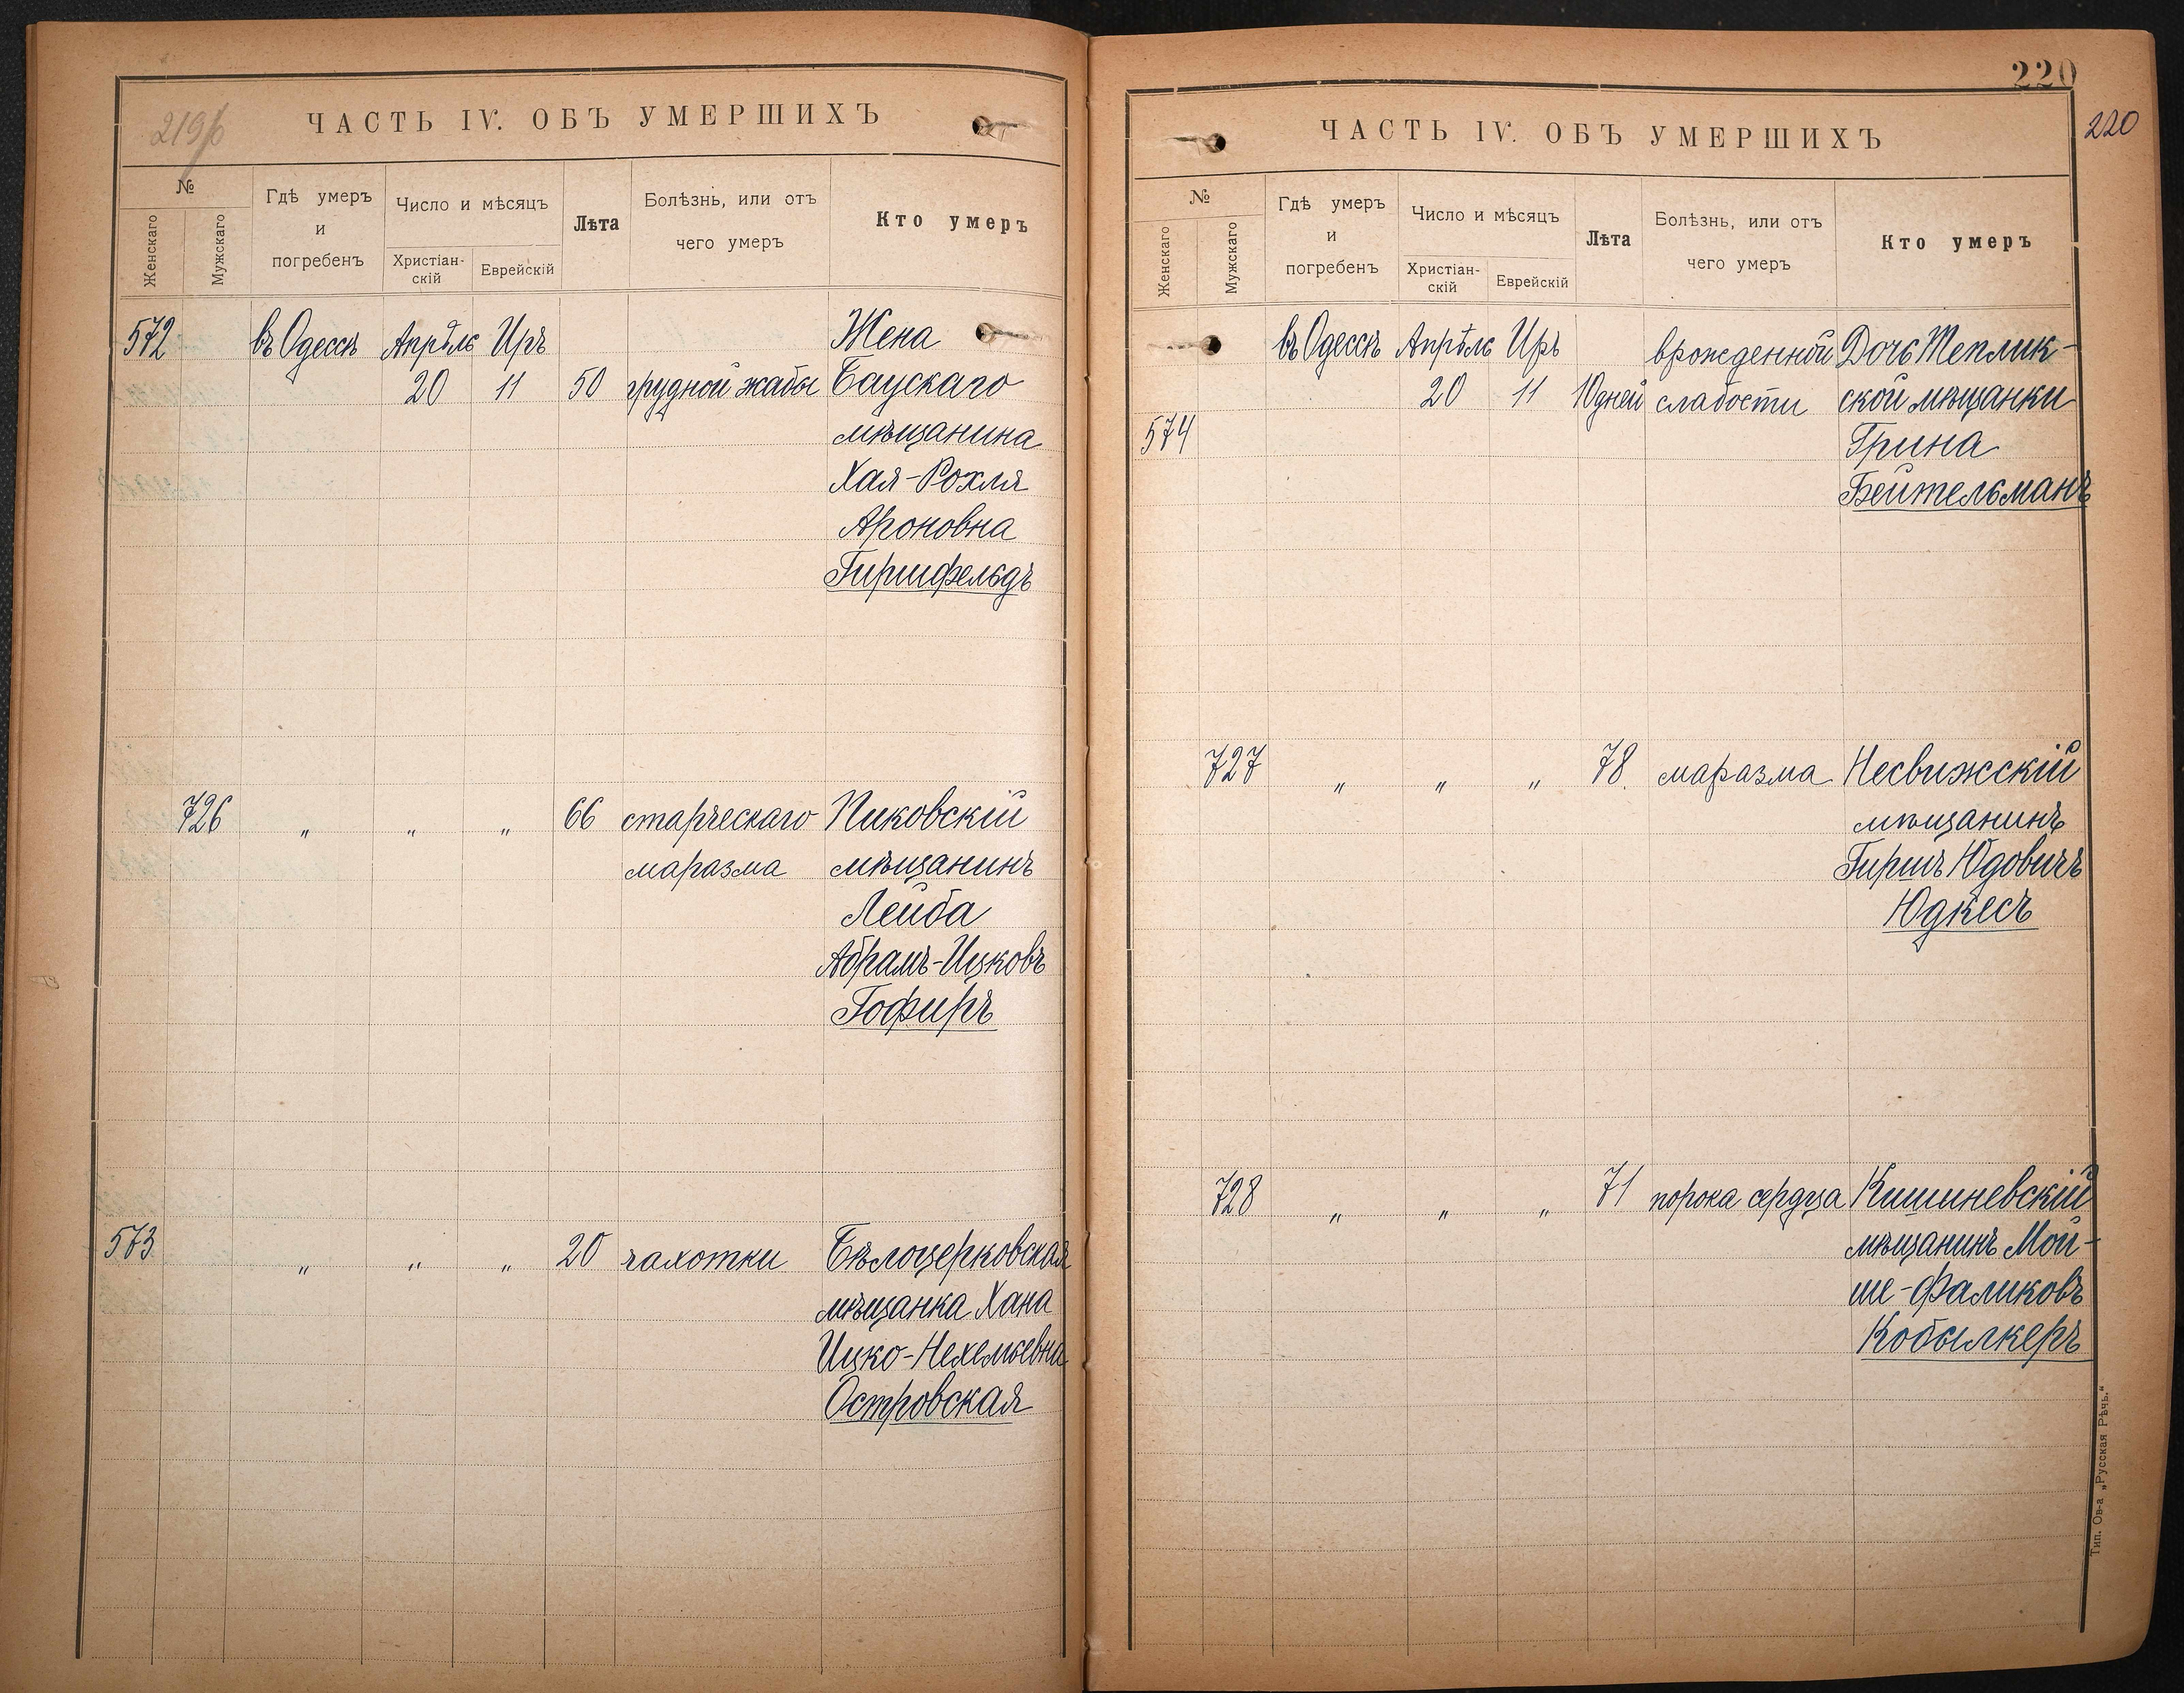 219б
ЧАСТЬ IV. ОБЪ УМЕРШИХЪ
№
Женскаго
Мужскаго
Гдѣ умеръ
и
погребенъ
Число и мѣсяцъ
Христіан-
скій
Еврейскій
Лѣта
Болѣзнь, или отъ
чего умеръ
Кто умеръ
572 въ Одессѣ Апрѣль Иръ Жена
20 11 50 грудной жабы Баускаго
мѣщанина
Хая-Рохля
Ароновна
Гиршфельдъ
726 " " " 66 старческаго Пиковскій
маразма мѣщанинъ
Лейба
Абрамъ-Ицковъ
Гофиръ
573 " " " 20 чахотки Бѣлоцерковская
мѣщанка Хана
Ицко-Нехемьевна
Островская
220
220
ЧАСТЬ IV. ОБЪ УМЕРШИХЪ
№
Женскаго
Мужскаго
Гдѣ умеръ
и
погребенъ
Число и мѣсяцъ
Христіан-
скій
Еврейскій
Лѣта
Болѣзнь, или отъ
чего умеръ
Кто умеръ
въ Одессѣ Апрѣль Иръ врожденной Дочь Теплик-
20 11 10 дней слабости ской мѣщанки
574 Грина
Бейтельманъ
727 " " " 78. маразма Несвижскій
мѣщанинъ
Гиршъ Юдовичъ
Юдкесъ
728 " " " 71 порока сердца Кишиневскій
мѣщанинъ Мой-
ше-Фаликовъ
Кобылкеръ
Тип. Ов-а „Русская Рѣчь."